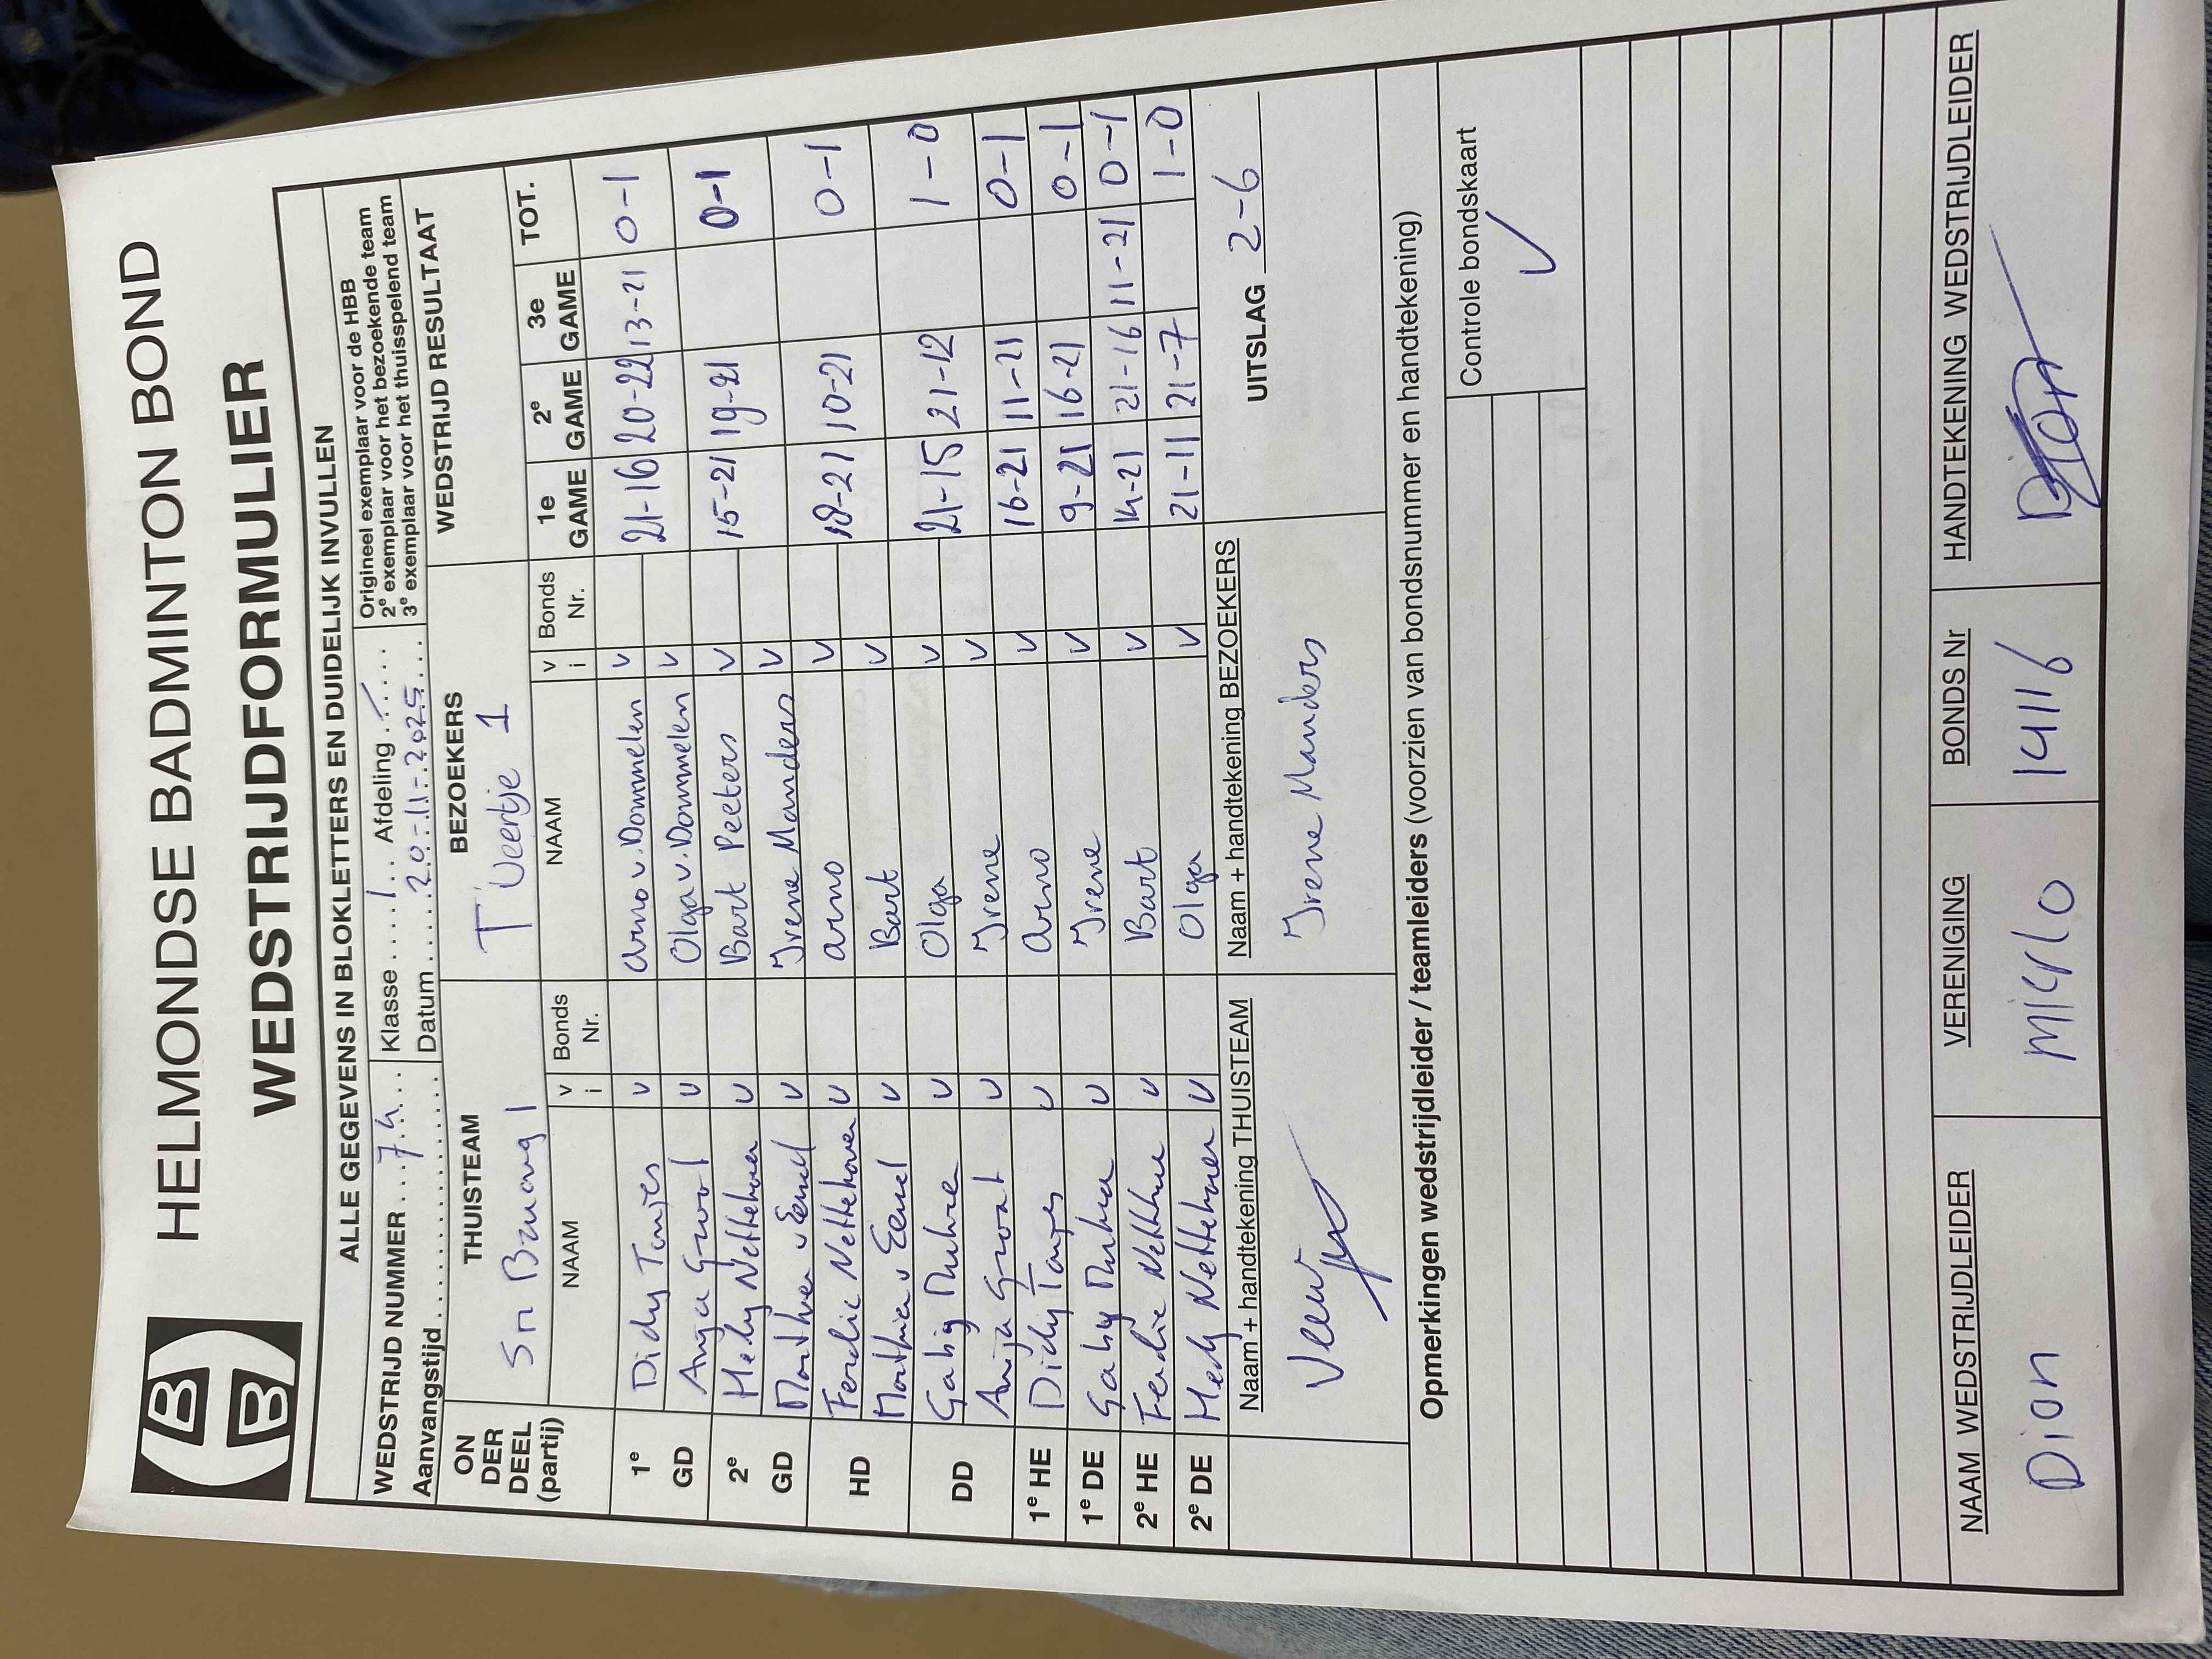 HELMONDSE BADMINTON BOND
WEDSTRIJDFORMULIER
ALLE GEGEVENS IN BLOKLETTERS EN DUIDELIJK INVULLEN
WEDSTRIJD NUMMER ...74... Klasse ....1.. Afdeling ./....
Aanvangstijd .................... Datum .....20-11-2025....
Origineel exemplaar voor de HBB
2e exemplaar voor het bezoekende team
3e exemplaar voor het thuisspelend team
ON DER DEEL (partij) THUISTEAM BEZOEKERS WEDSTRIJD RESULTAAT
Sn 1 T Veertje 1
NAAM v i Bonds Nr. NAAM v i Bonds Nr. 1e GAME 2e GAME 3e GAME TOT.
1e GD Didy v Arno v. Dommelen v 21-16 20-22 13-21 0-1
Anja Groot v Olga v. Dommelen v
2e GD Hedy Nettehoven v Bart Peeters v 15-21 19-21 0-1
v v Irene Manders v
HD Ferdie Nettehoven v Arno v 18-21 10-21 0-1
v v Bart v
DD Gaby v Olga v 21-15 21-12 1-0
Anja Groot v Irene v
1e HE Didy v Arno v 16-21 11-21 0-1
1e DE Gaby v Irene v 9-21 16-21 0-1
2e HE Ferdie v Bart v 14-21 21-16 11-21 0-1
2e DE Hedy Nettehoven v Olga v 21-11 21-7 1-0
Naam + handtekening THUISTEAM Naam + handtekening BEZOEKERS UITSLAG 2-6
Irene Manders
Opmerkingen wedstrijdleider / teamleiders (voorzien van bondsnummer en handtekening)
Controle bondskaart
NAAM WEDSTRIJDLEIDER VERENIGING BONDS Nr HANDTEKENING WEDSTRIJDLEIDER
Dion Mierlo 14116